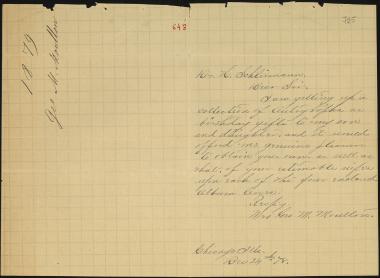 643
705
1/8/79
Geo. M. Moulton
Dr. H. Schliemann,
Dear Sir:
I am getting up a
collection of Autographs as
birthday gifts to my son
and daughter, and it would
afford me genuine pleasure
to obtain your name as well as
that of your estimable wife
upon each of the four enclosed
Album leaves.
Respy.
Mrs Geo M. Moulton.
Chicago Ills.
Dec 24th 78.